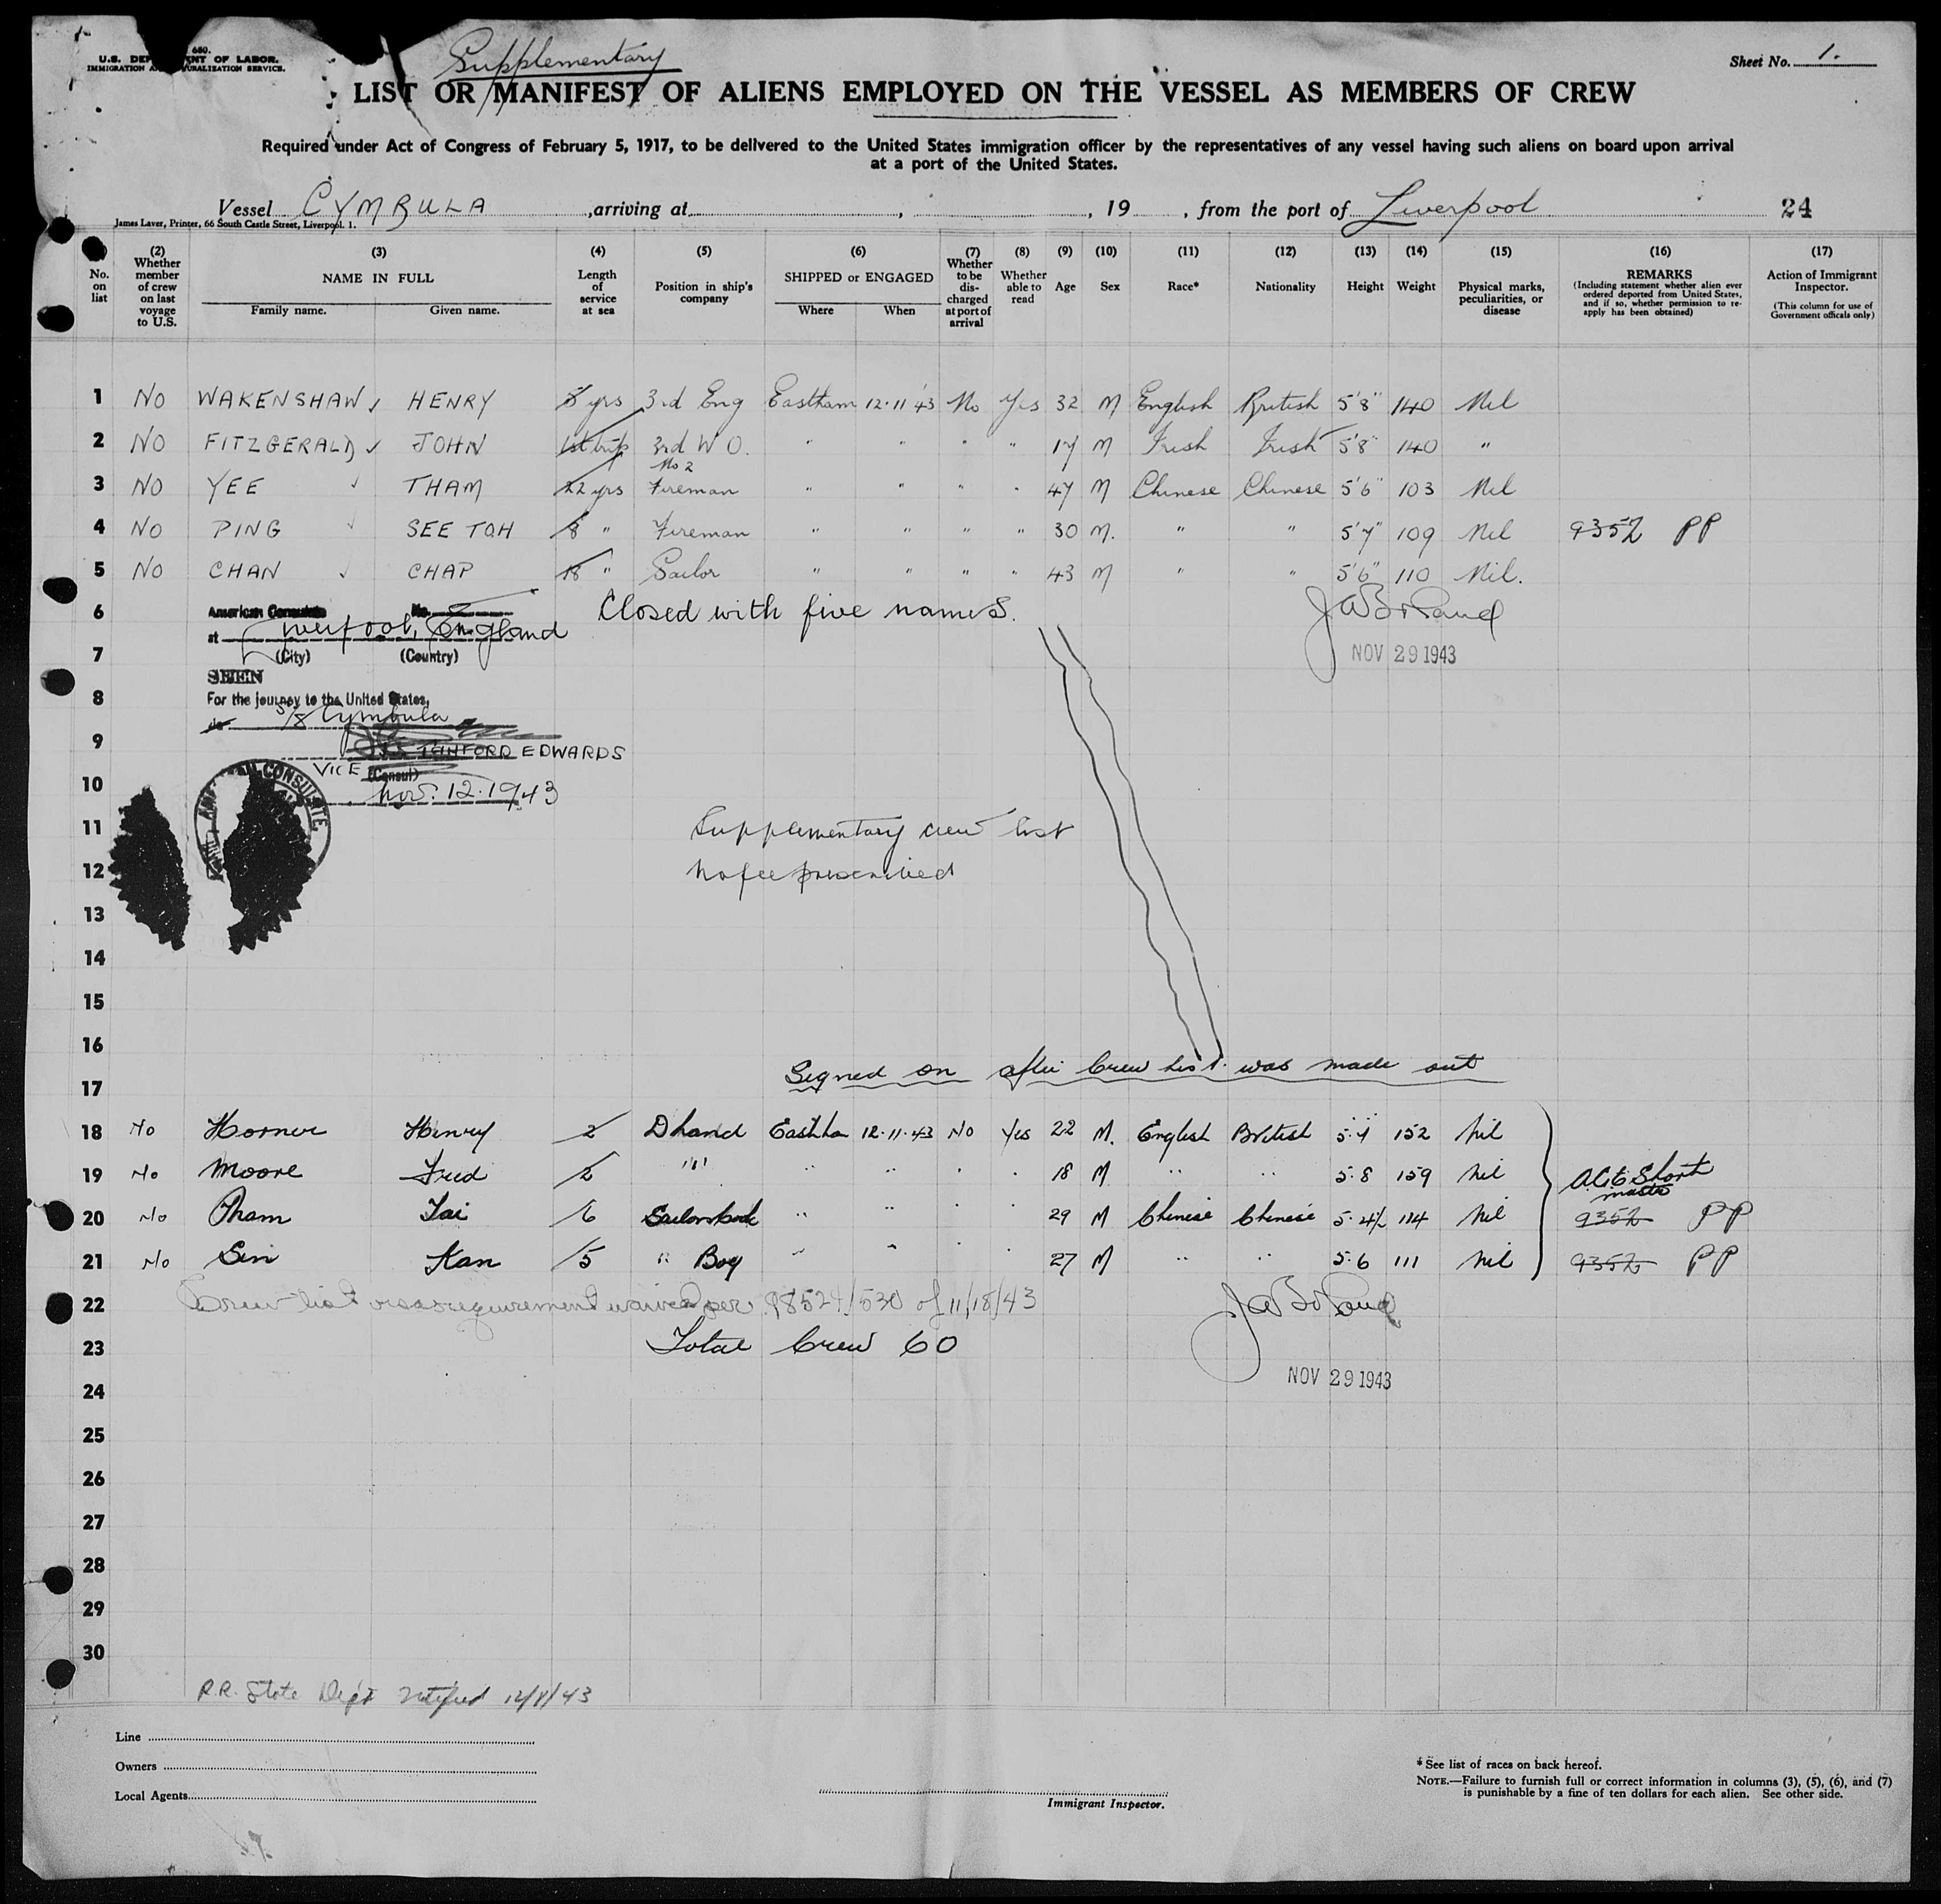 680.
U.S. DEP NT OF LABOR.
IMMIGRATION A URALIZATION SERVICE.
Supplementary
Sheet No. 1.
LIST OR MANIFEST OF ALIENS EMPLOYED ON THE VESSEL AS MEMBERS OF CREW
Required under Act of Congress of February 5, 1917, to be delivered to the United States immigration officer by the representatives of any vessel having such aliens on board upon arrival
at a port of the United States.
Vessel CYMBULA, arriving at , , 19 , from the port of Liverpool 24
James Laver, Printer, 66 South Castle Street, Liverpool. 1.
No. on list
(2) Whether member of crew on last voyage to U.S.
(3) NAME IN FULL
Family name. Given name.
(4) Length of service at sea
(5) Position in ship's company
(6) SHIPPED or ENGAGED
Where When
(7) Whether to be discharged at port of arrival
(8) Whether able to read
(9) Age
(10) Sex
(11) Race*
(12) Nationality
(13) Height
(14) Weight
(15) Physical marks, peculiarities, or disease
(16) REMARKS (Including statement whether alien ever ordered deported from United States, and if so, whether permission to re-apply has been obtained)
(17) Action of Immigrant Inspector. (This column for use of Government officals only)
1 No WAKENSHAW HENRY 8 yrs 3rd Eng Eastham 12·11·43 No Yes 32 M English British 5'8" 140 Nil
2 No FITZGERALD JOHN 1st trip 3rd W O. " " " " 17 M Irish Irish 5'8" 140 "
3 No YEE THAM 22 yrs No 2 Fireman " " " " 47 M Chinese Chinese 5'6" 103 Nil
4 No PING SEE TOH 8 " Fireman " " " " 30 M. " " 5'7" 109 Nil 9352 PP
5 No CHAN CHAP 18 " Sailor " " " " 43 M " " 5'6" 110 Nil.
6 American Consulate No. Closed with five names.
at Liverpool, England
7 (City) (Country) NOV 29 1943
SEEN
8 For the journey to the United States,
S/S Cymbula
9 STANFORD EDWARDS
VICE (Consul)
10 Nov. 12. 1943
AMERICAN CONSULATE
11 Supplementary crew list
12 No fee prescribed
13
14
15
16
Signed on after Crew List was made out
17
18 No Horner Henry 2 D hand Eastha 12·11·43 No Yes 22 M. English British 5·7 152 Nil
19 No Moore Fred 2 " " " " " 18 M " " 5·8 159 Nil
20 No Pham Tai 6 Sailors Cook " " " " 29 M Chinese Chinese 5·4½ 114 Nil 9352 PP
21 No Sin Kan 5 " Boy " " " " 27 M " " 5·6 111 Nil 9352 PP
A C E Short
master
22 Crew list visa requirement waived per 98524/530 of 11/18/43
23 Total Crew 60
24 NOV 29 1943
25
26
27
28
29
30
R.R. State Dept Notified 12/8/43
Line
Owners
Local Agents
Immigrant Inspector.
* See list of races on back hereof.
NOTE.—Failure to furnish full or correct information in columns (3), (5), (6), and (7)
is punishable by a fine of ten dollars for each alien. See other side.